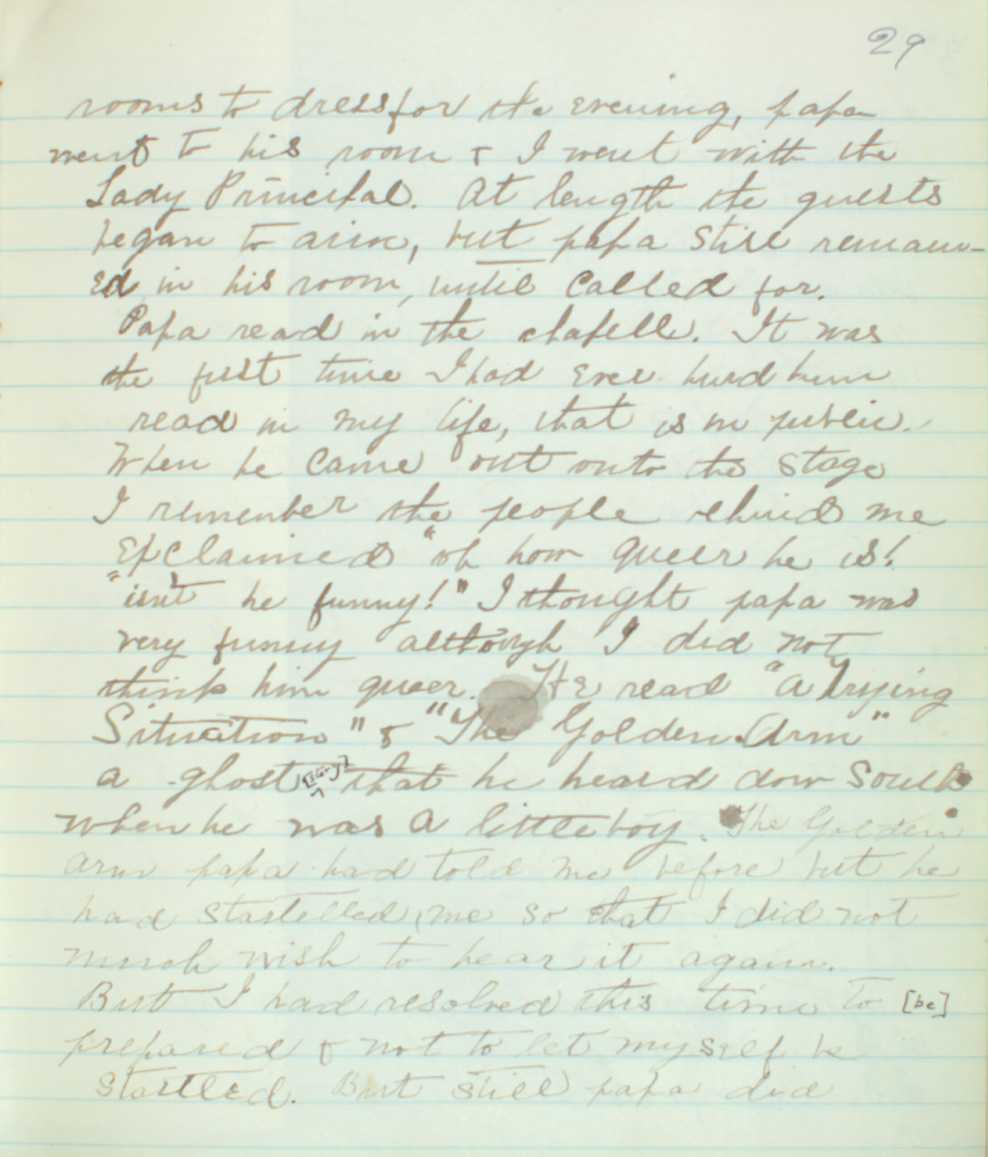 29
rooms to dress for the evening, papa
went to his room & I went with the
Lady Principal. At length the guests
began to arive, but papa still remain-
ed in his room, until called for.
Papa read in the chapell. It was
the first time I had ever hurd him
read in my life, that is in public.
When he came out onto the stage
I remember the people behind me
exclaimed "oh how queer he is!
"isn't he funny!" I thought papa was
very funny although I did not
think him queer. He read "A Trying
Situation" & "The Golden Arm"
a ghost [story] that he heard down South
when he was a little boy. The Golden
Arm papa had told me before but he
had startelled me so that I did not
much wish to hear it again.
But I had resolved this time to [be]
prepared & not to let myself be
startled. But still papa did